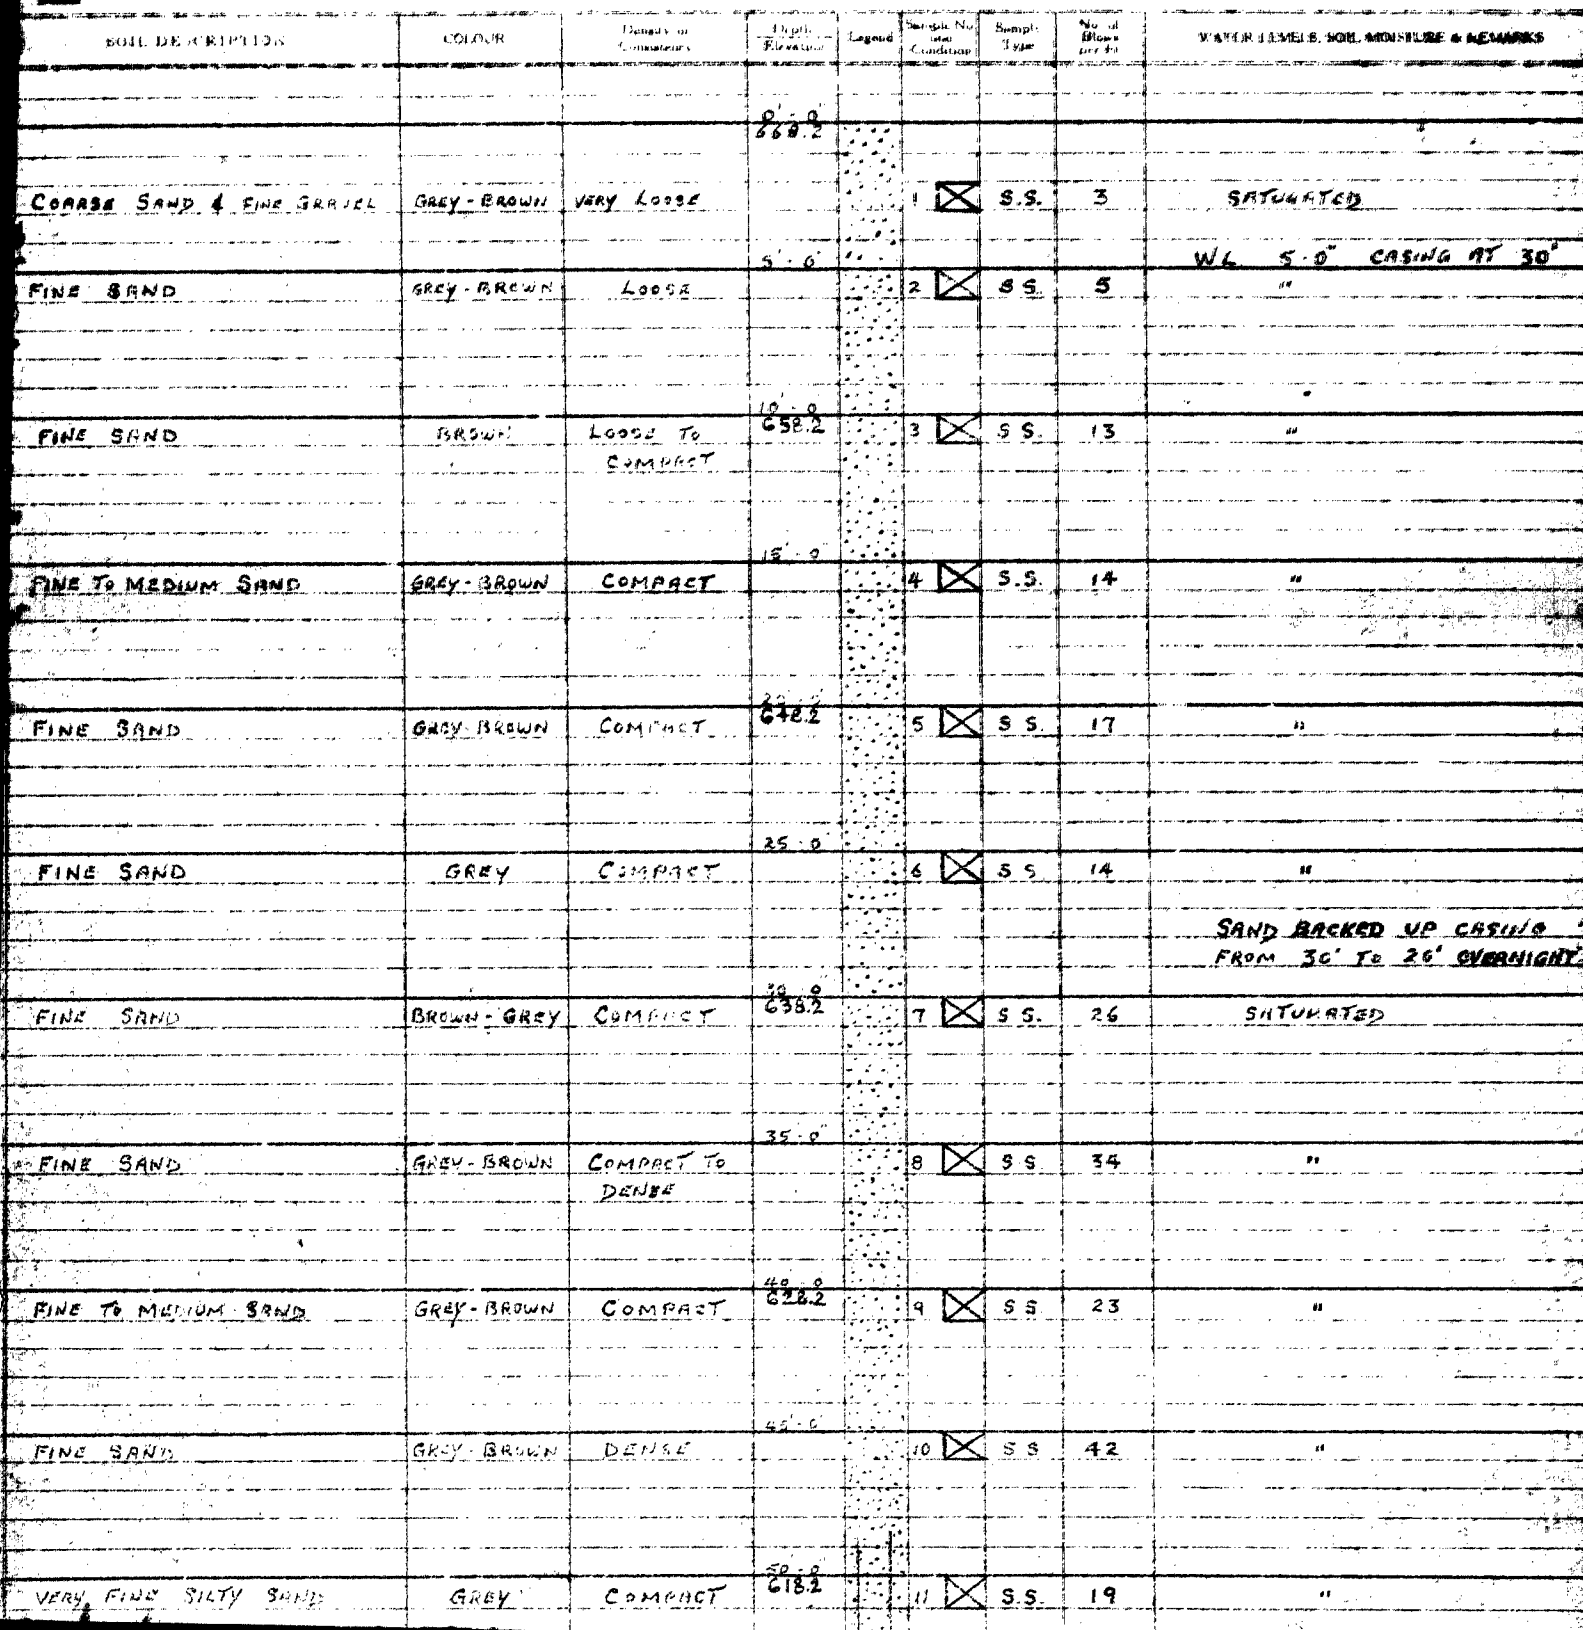 SOIL DESCRIPTION COLOUR Density or Consistency Depth Elevation Legend Sample No. and Condition Sample Type No. of Blows per ft WATER LEVELS, SOIL MOISTURE & REMARKS
0' - 0"
668.2
COARSE SAND & FINE GRAVEL GREY-BROWN VERY LOOSE 1 S.S. 3 SATURATED
5' - 0" WL 5-0" CASING AT 30'
FINE SAND GREY-BROWN LOOSE 2 S S. 5 "
10' - 0
FINE SAND BROWN LOOSE TO 658.2 3 S S. 13 "
COMPACT
15' - 0"
FINE TO MEDIUM SAND GREY-BROWN COMPACT 4 S.S. 14 "
20 - 0
FINE SAND GREY-BROWN COMPACT 648.2 5 S S. 17 "
25 - 0
FINE SAND GREY COMPACT 6 S S 14 "
SAND BACKED UP CASING
FROM 30' TO 26' OVERNIGHT.
30 - 0
FINE SAND BROWN-GREY COMPACT 638.2 7 S S. 26 SATURATED
35 - 0"
FINE SAND GREY-BROWN COMPACT TO 8 S S 34 "
DENSE
40 - 0
FINE TO MEDIUM SAND GREY-BROWN COMPACT 628.2 9 S S 23 "
45' - 0"
FINE SAND GREY-BROWN DENSE 10 S S 42 "
50 - 0
VERY FINE SILTY SAND GREY COMPACT 618.2 11 S.S. 19 "